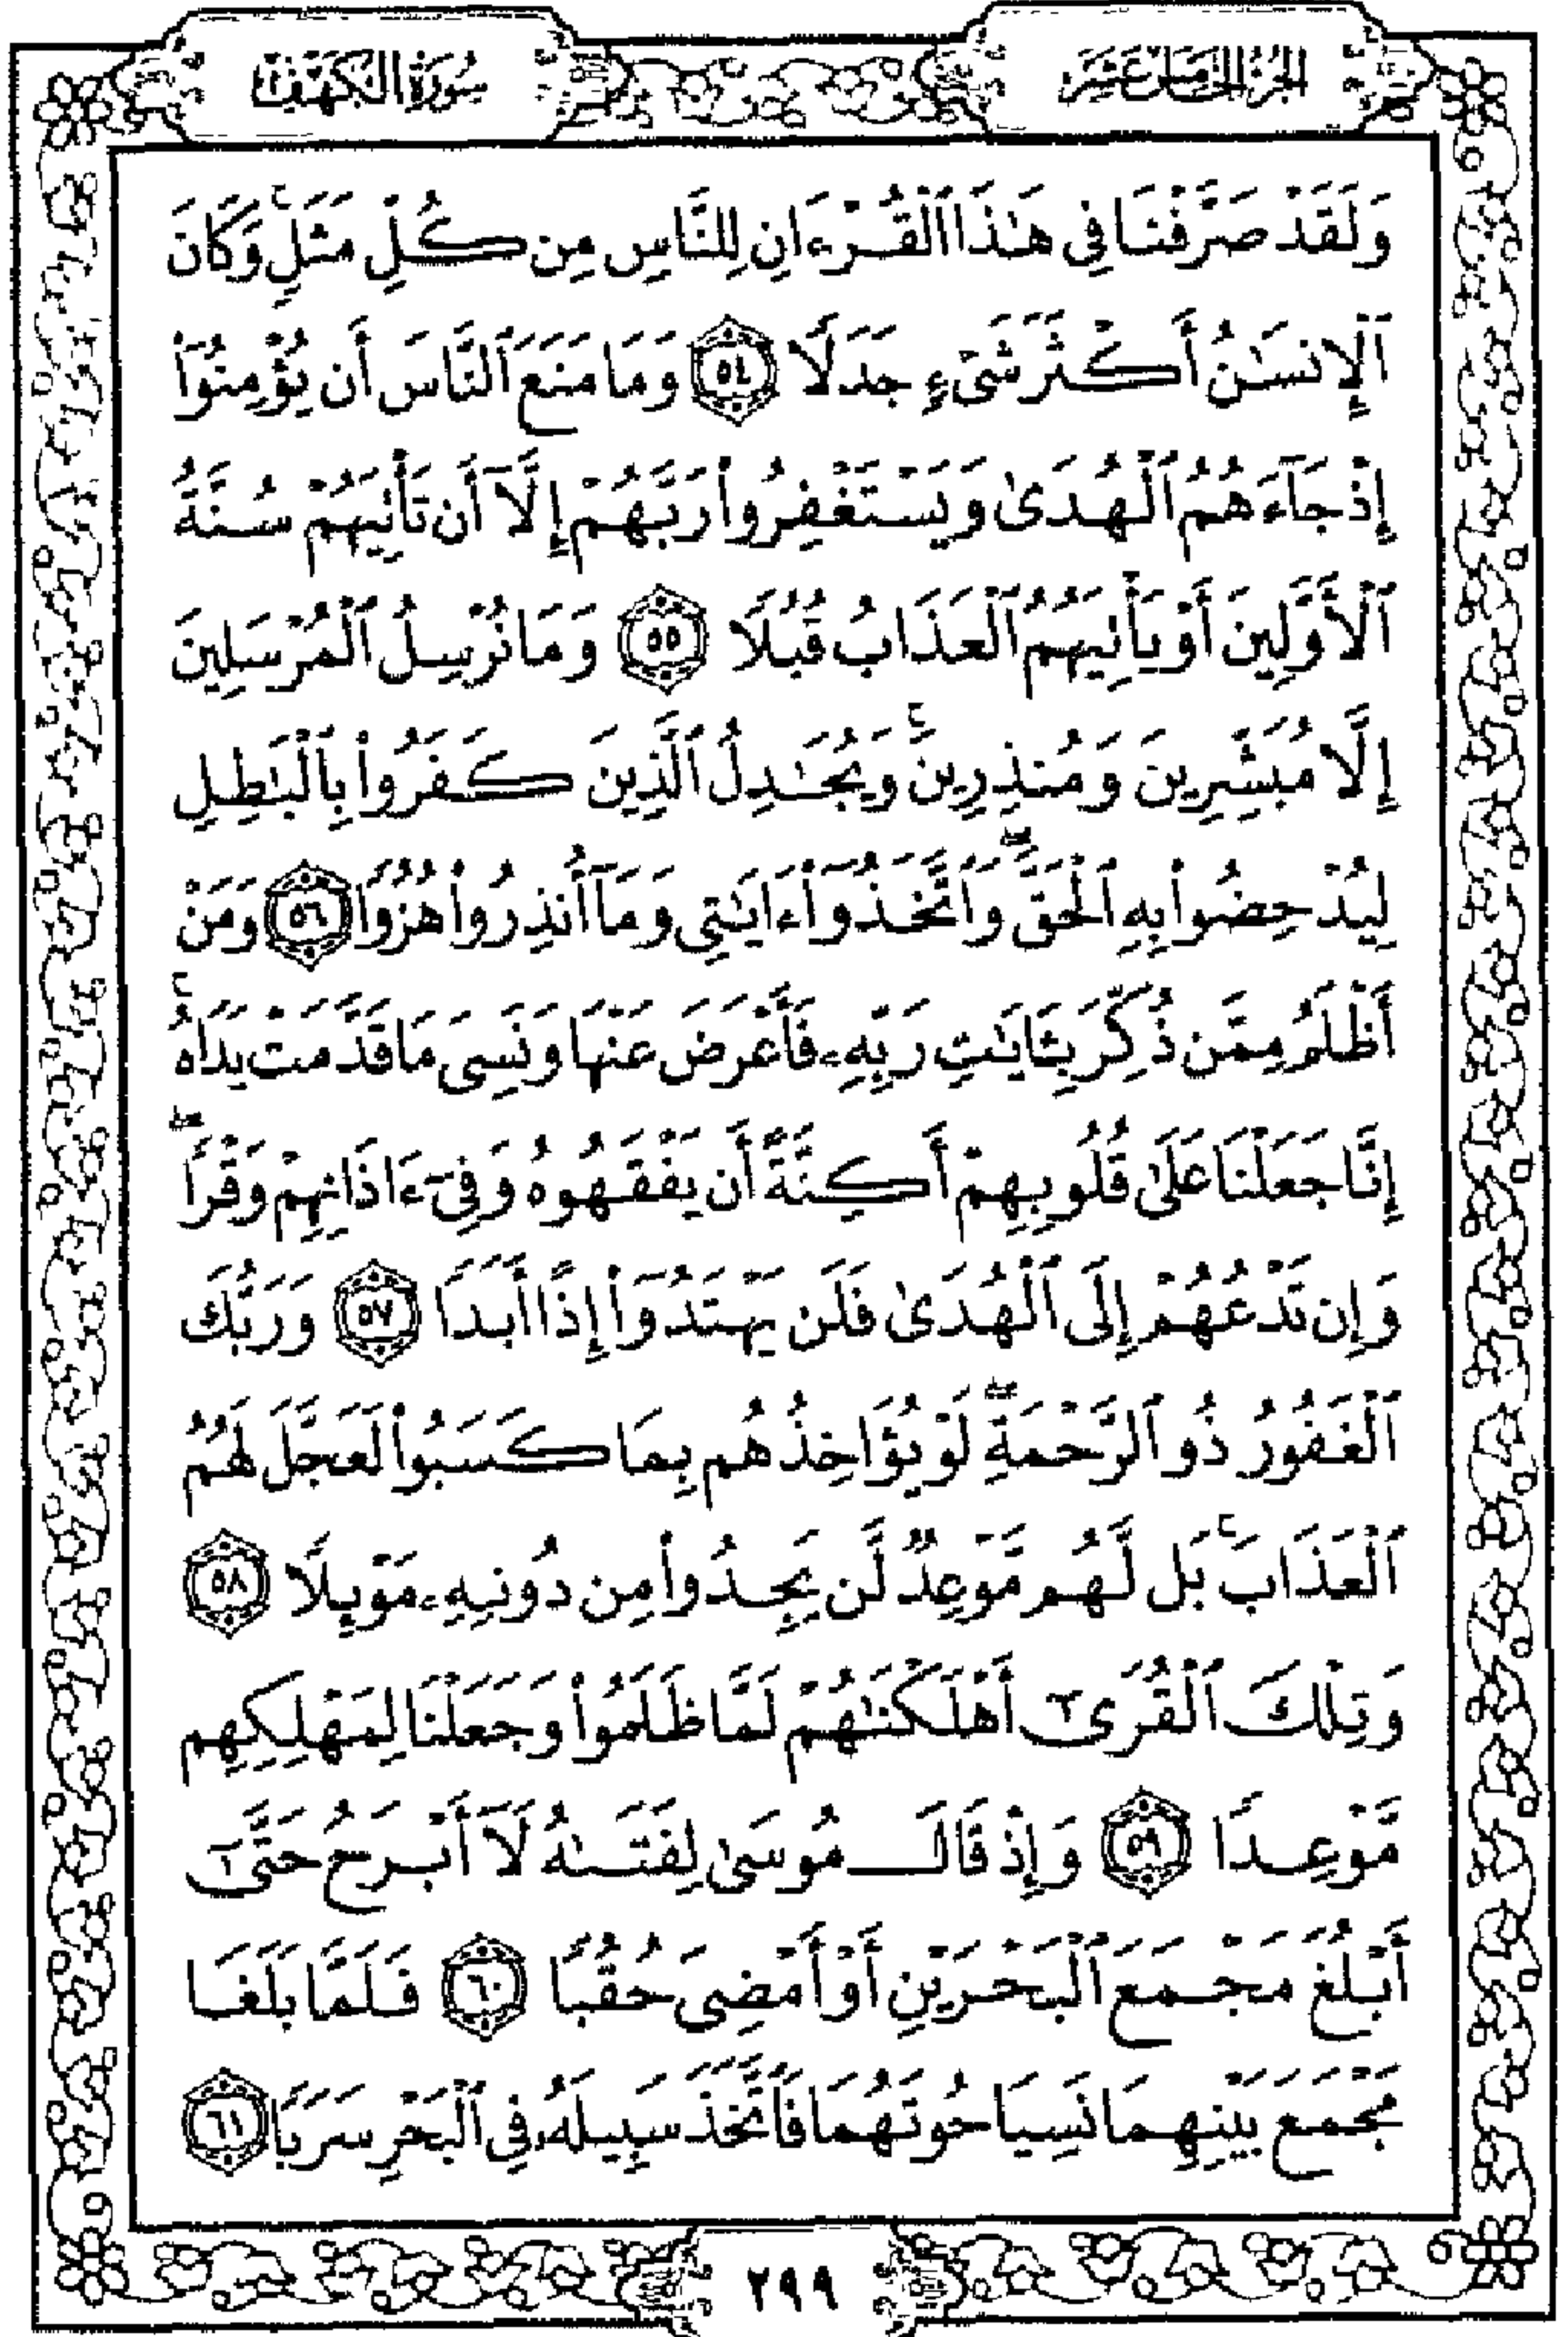 الجزء الخامس عشر
سورة الكهف
وَلَقَدْ صَرَّفْنَا فِى هَٰذَا ٱلْقُرْءَانِ لِلنَّاسِ مِن كُلِّ مَثَلٍۚ وَكَانَ
ٱلْإِنسَٰنُ أَكْثَرَ شَىْءٍ جَدَلًا ٥٤ وَمَا مَنَعَ ٱلنَّاسَ أَن يُؤْمِنُوٓا۟
إِذْ جَآءَهُمُ ٱلْهُدَىٰ وَيَسْتَغْفِرُوا۟ رَبَّهُمْ إِلَّآ أَن تَأْتِيَهُمْ سُنَّةُ
ٱلْأَوَّلِينَ أَوْ يَأْتِيَهُمُ ٱلْعَذَابُ قُبُلًا ٥٥ وَمَا نُرْسِلُ ٱلْمُرْسَلِينَ
إِلَّا مُبَشِّرِينَ وَمُنذِرِينَۚ وَيُجَٰدِلُ ٱلَّذِينَ كَفَرُوا۟ بِٱلْبَٰطِلِ
لِيُدْحِضُوا۟ بِهِ ٱلْحَقَّۖ وَٱتَّخَذُوٓا۟ ءَايَٰتِى وَمَآ أُنذِرُوا۟ هُزُوًا ٥٦ وَمَنْ
أَظْلَمُ مِمَّن ذُكِّرَ بِـَٔايَٰتِ رَبِّهِۦ فَأَعْرَضَ عَنْهَا وَنَسِىَ مَا قَدَّمَتْ يَدَاهُۚ
إِنَّا جَعَلْنَا عَلَىٰ قُلُوبِهِمْ أَكِنَّةً أَن يَفْقَهُوهُ وَفِىٓ ءَاذَانِهِمْ وَقْرًاۖ
وَإِن تَدْعُهُمْ إِلَى ٱلْهُدَىٰ فَلَن يَهْتَدُوٓا۟ إِذًا أَبَدًا ٥٧ وَرَبُّكَ
ٱلْغَفُورُ ذُو ٱلرَّحْمَةِۖ لَوْ يُؤَاخِذُهُم بِمَا كَسَبُوا۟ لَعَجَّلَ لَهُمُ
ٱلْعَذَابَۚ بَل لَّهُم مَّوْعِدٌ لَّن يَجِدُوا۟ مِن دُونِهِۦ مَوْئِلًا ٥٨
وَتِلْكَ ٱلْقُرَىٰٓ أَهْلَكْنَٰهُمْ لَمَّا ظَلَمُوا۟ وَجَعَلْنَا لِمَهْلِكِهِم
مَّوْعِدًا ٥٩ وَإِذْ قَالَ مُوسَىٰ لِفَتَىٰهُ لَآ أَبْرَحُ حَتَّىٰٓ
أَبْلُغَ مَجْمَعَ ٱلْبَحْرَيْنِ أَوْ أَمْضِىَ حُقُبًا ٦٠ فَلَمَّا بَلَغَا
مَجْمَعَ بَيْنِهِمَا نَسِيَا حُوتَهُمَا فَٱتَّخَذَ سَبِيلَهُۥ فِى ٱلْبَحْرِ سَرَبًا ٦١
٢٩٩